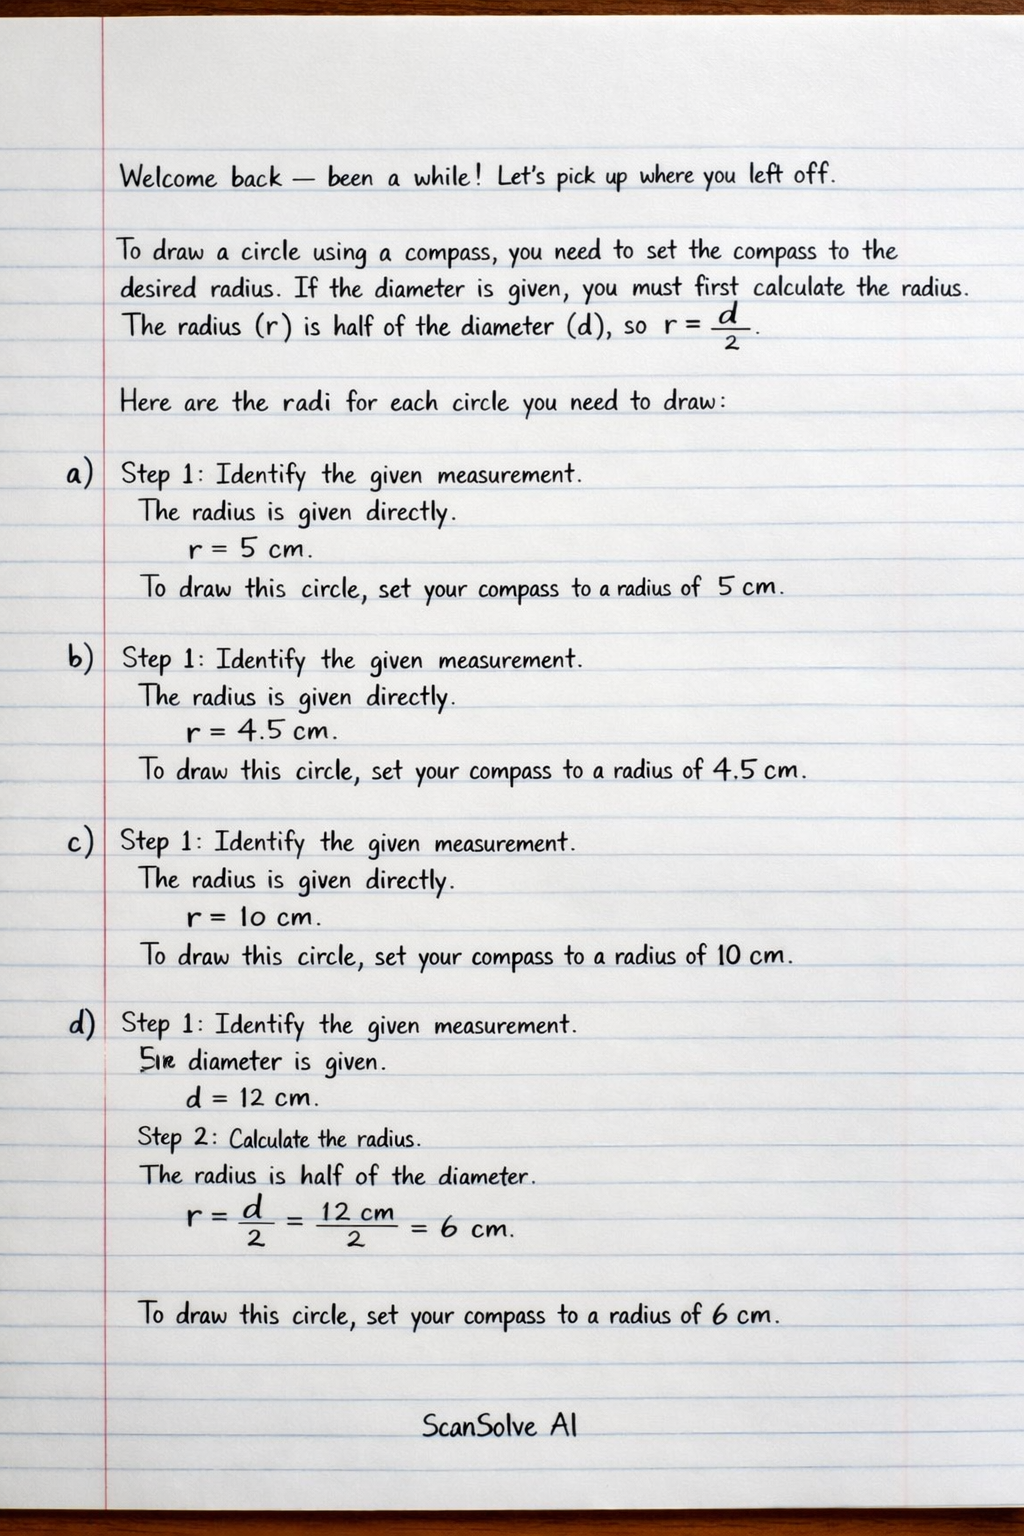 Welcome back — been a while! Let's pick up where you left off.
To draw a circle using a compass, you need to set the compass to the
desired radius. If the diameter is given, you must first calculate the radius.
The radius (r) is half of the diameter (d), so r = d/2.
Here are the radi for each circle you need to draw:
a) Step 1: Identify the given measurement.
The radius is given directly.
r = 5 cm.
To draw this circle, set your compass to a radius of 5 cm.
b) Step 1: Identify the given measurement.
The radius is given directly.
r = 4.5 cm.
To draw this circle, set your compass to a radius of 4.5 cm.
c) Step 1: Identify the given measurement.
The radius is given directly.
r = 10 cm.
To draw this circle, set your compass to a radius of 10 cm.
d) Step 1: Identify the given measurement.
diameter is given.
d = 12 cm.
Step 2: Calculate the radius.
The radius is half of the diameter.
r = d/2 = 12 cm/2 = 6 cm.
To draw this circle, set your compass to a radius of 6 cm.
ScanSolve AI